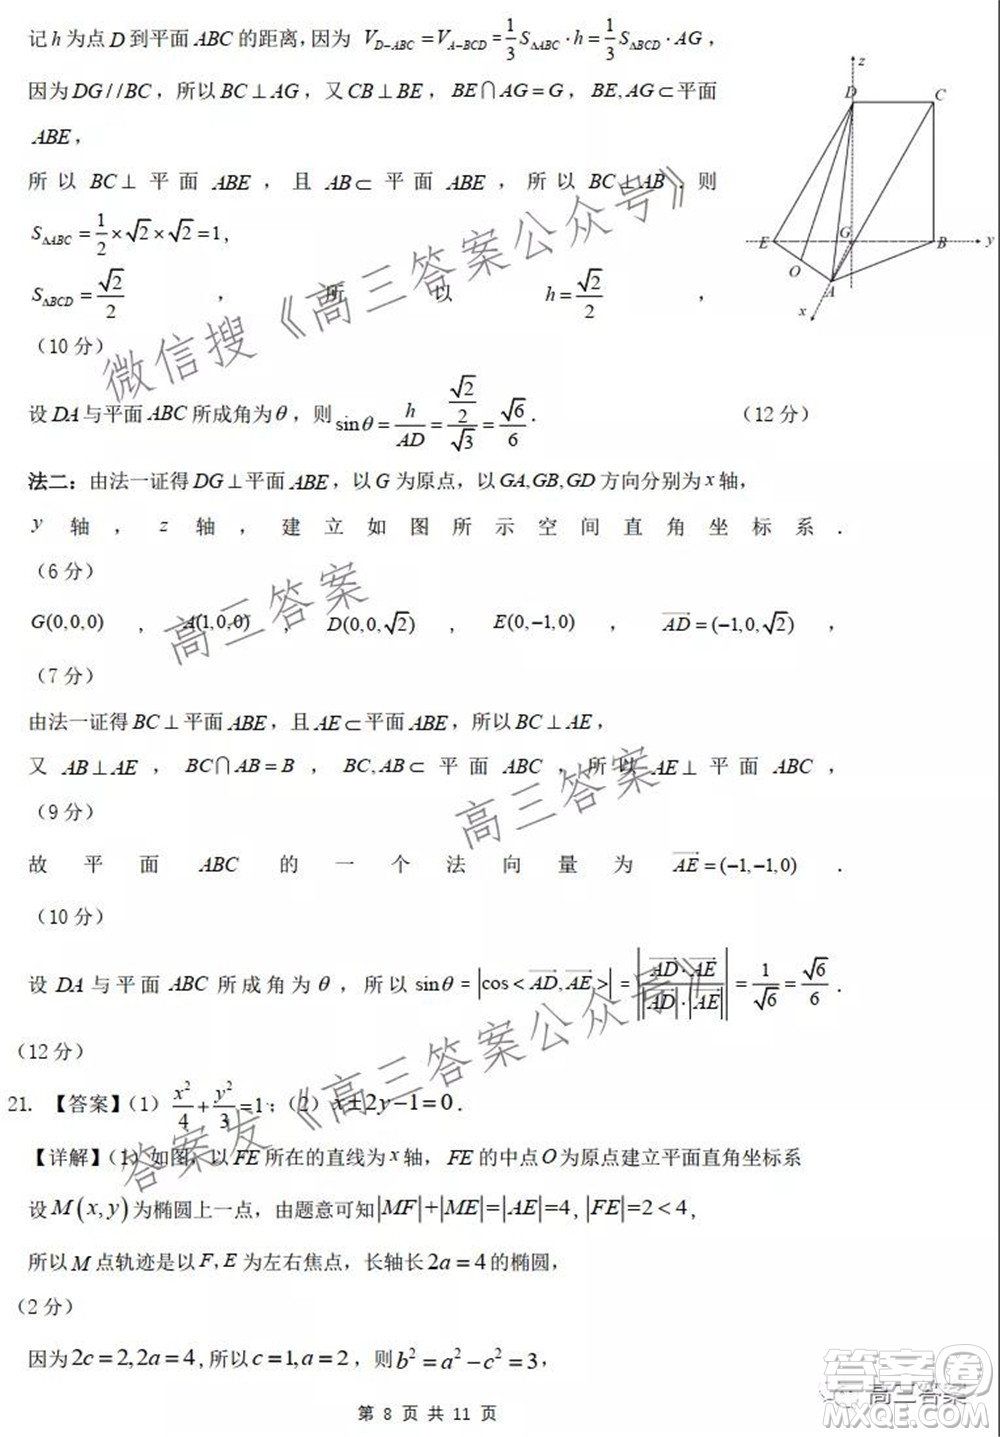 记h为点D到平面ABC的距离,因为 V_{D-ABC}=V_{A-BCD}=\frac{1}{3}S_{ΔABC}·h=\frac{1}{3}S_{ΔBCD}·AG,
因为DG//BC,所以BC⊥AG,又CB⊥BE,BE∩AG=G,BE,AG⊂平面
ABE,
所以BC⊥平面ABE,且AB⊂平面ABE,所以BC⊥AB.则
S_{ΔABC}=\frac{1}{2}×√2×√2=1,
S_{ΔBCD}=\frac{√2}{2},所以h=\frac{√2}{2},
(10分)
z
D
C
E
G
B
y
O
A
x
设DA与平面ABC所成角为θ,则sinθ=\frac{h}{AD}=\frac{\frac{√2}{2}}{√3}=\frac{√6}{6}. (12分)
法二:由法一证得DG⊥平面ABE,以G为原点,以GA,GB,GD方向分别为x轴,
y轴,z轴,建立如图所示空间直角坐标系.
(6分)
G(0,0,0),A(1,0,0),D(0,0,√2),E(0,-1,0),\overrightarrow{AD}=(-1,0,√2),
(7分)
由法一证得BC⊥平面ABE,且AE⊂平面ABE,所以BC⊥AE,
又AB⊥AE,BC∩AB=B,BC,AB⊂平面ABC,所以AE⊥平面ABC,
(9分)
故平面ABC的一个法向量为\overrightarrow{AE}=(-1,-1,0).
(10分)
设DA与平面ABC所成角为θ,所以sinθ=|cos<\overrightarrow{AD},\overrightarrow{AE}>|=|\frac{\overrightarrow{AD}·\overrightarrow{AE}}{|\overrightarrow{AD}|·|\overrightarrow{AE}|}|=\frac{1}{√6}=\frac{√6}{6}.
(12分)
21. 【答案】(1)\frac{x^2}{4}+\frac{y^2}{3}=1;(2)x±2y-1=0.
【详解】(1)如图,以FE所在的直线为x轴,FE的中点O为原点建立平面直角坐标系
设M(x,y)为椭圆上一点,由题意可知|MF|+|ME|=|AE|=4,|FE|=2<4,
所以M点轨迹是以F,E为左右焦点,长轴长2a=4的椭圆,
(2分)
因为2c=2,2a=4,所以c=1,a=2,则b^2=a^2-c^2=3,
第 8 页 共 11 页
微信搜《高三答案公众号》
高三答案
高三答案
答案发《高三答案公众号》
高三答案
答案圈
MXQE.COM